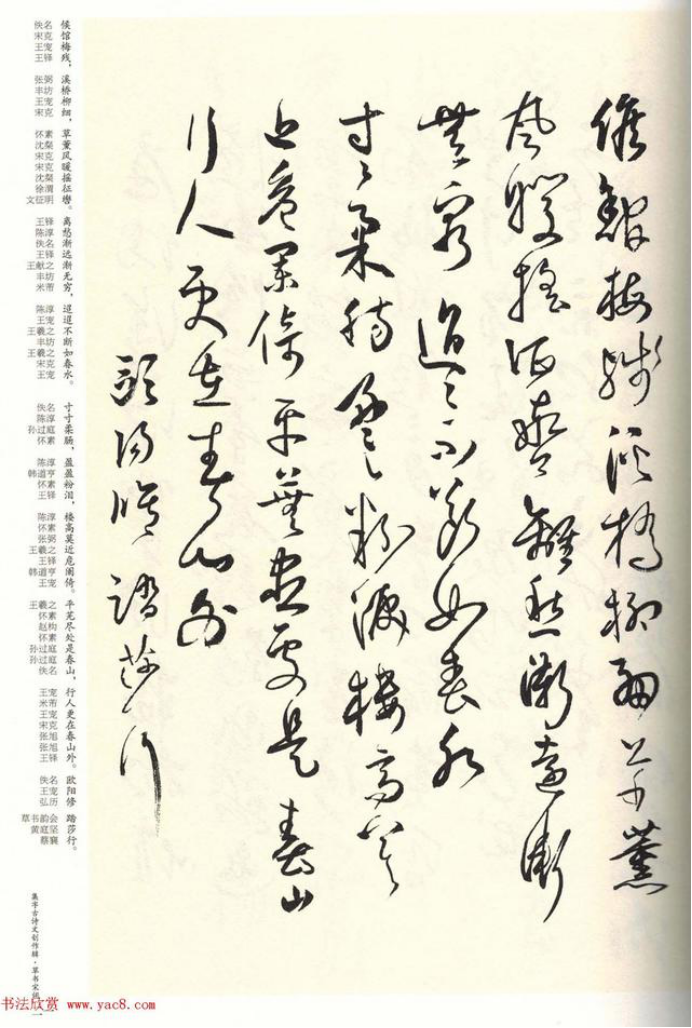 候館梅殘溪橋柳細草薰
風暖搖征轡離愁漸遠漸
無窮迢迢不斷如春水
寸寸柔腸盈盈粉淚樓高莫
近危闌倚平蕪盡處是春山
行人更在春山外
歐陽修踏莎行
候馆梅残，溪桥柳细，草薰风暖摇征辔。离愁渐远渐无穷，迢迢不断如春水。寸寸柔肠，盈盈粉泪，楼高莫近危阑倚。平芜尽处是春山，行人更在春山外。欧阳修踏莎行。
佚名
宋克
王宠
王铎
张弼
丰坊
王宠
宋克
怀素
沈粲
宋克
宋克
沈粲
徐渭
文征明
王铎
陈淳
佚名
王铎
王献之
丰坊
米芾
陈淳
王宠
王羲之
丰坊
王羲之
宋克
王宠
佚名
陈淳
孙过庭
怀素
陈淳
韩道亨
怀素
王铎
陈淳
怀素
张弼
王羲之
王铎
韩道亨
王宠
王羲之
怀素
赵构
怀素
孙过庭
孙过庭
佚名
王宠
米芾
王宠
宋克
张旭
张旭
王铎
佚名
王宠
弘历
草书韵会
黄庭坚
蔡襄
集字古诗文创作辑·草书宋词
书法欣赏 www.yac8.com